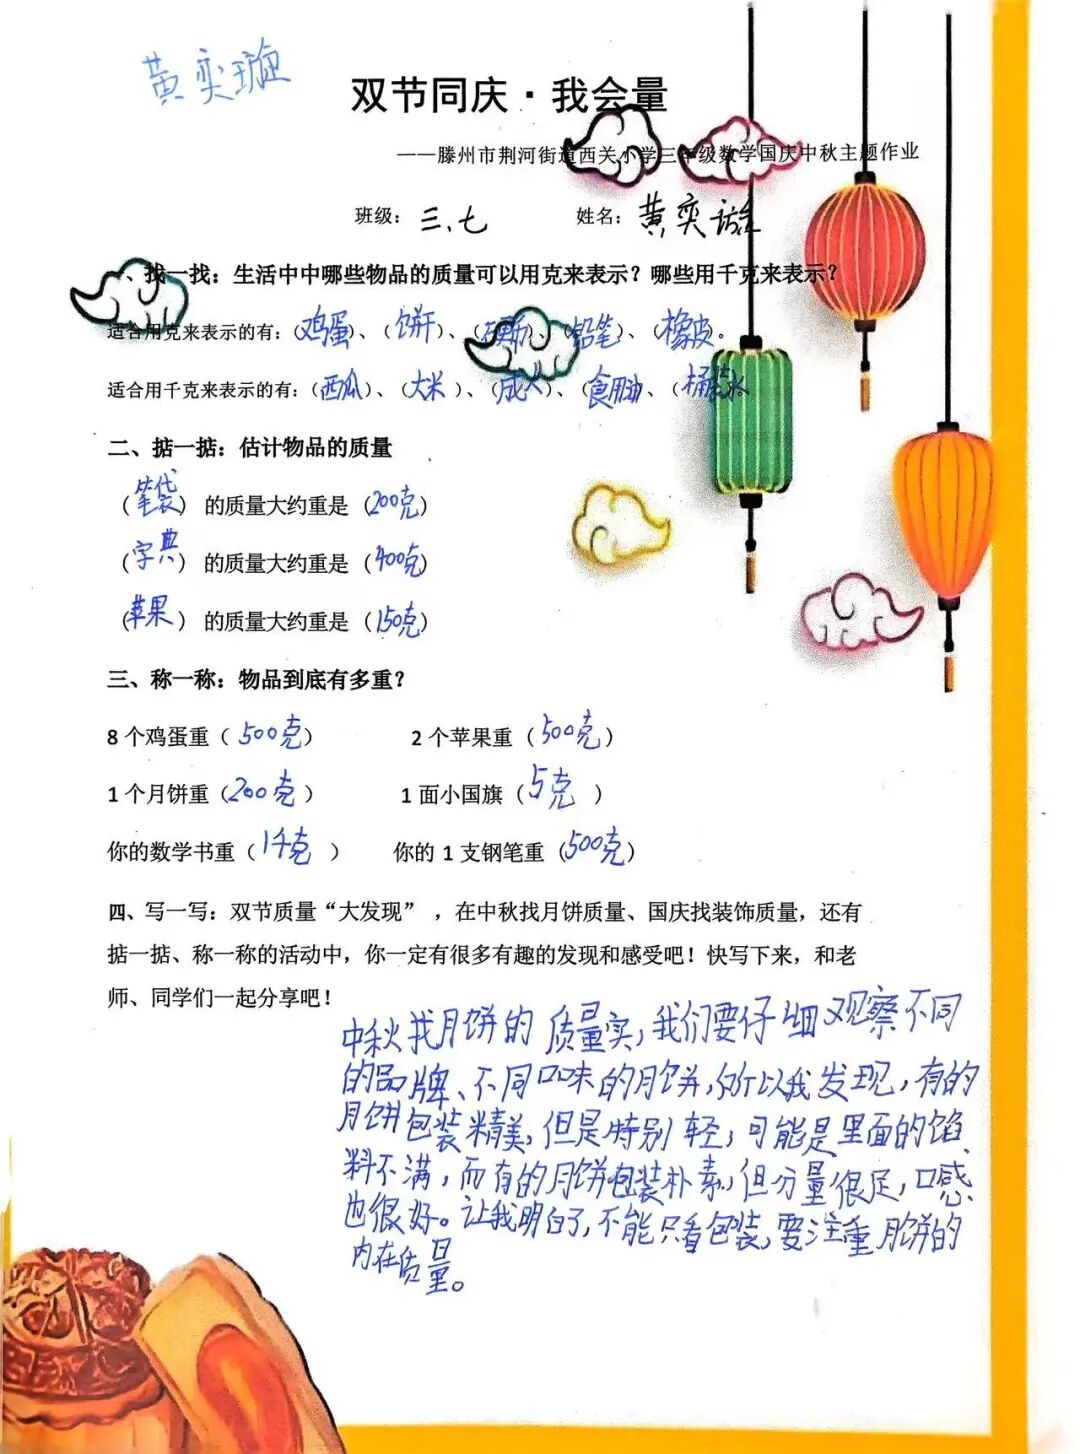 黄奕璇
双节同庆·我会量
——滕州市荆河街道西关小学三年级数学国庆中秋主题作业
班级：三、七 姓名：黄奕璇
一、找一找：生活中中哪些物品的质量可以用克来表示？哪些用千克来表示？
适合用克来表示的有：（鸡蛋）、（饼干）、（）、（铅笔）、（橡皮）。
适合用千克来表示的有：（西瓜）、（大米）、（成人）、（食用油）、（桶装水）。
二、掂一掂：估计物品的质量
（笔袋）的质量大约重是（200克）
（字典）的质量大约重是（400克）
（苹果）的质量大约重是（150克）
三、称一称：物品到底有多重？
8个鸡蛋重（500克） 2个苹果重（500克）
1个月饼重（200克） 1面小国旗（5克）
你的数学书重（1千克） 你的1支钢笔重（500克）
四、写一写：双节质量“大发现”，在中秋找月饼质量、国庆找装饰质量，还有
掂一掂、称一称的活动中，你一定有很多有趣的发现和感受吧！快写下来，和老
师、同学们一起分享吧！
中秋找月饼的质量实，我们要仔细观察不同
的品牌、不同口味的月饼，所以我发现，有的
月饼包装精美，但是特别轻，可能是里面的馅
料不满，而有的月饼包装朴素，但分量很足，口感
也很好。让我明白了，不能只看包装，要注重月饼的
内在质量。